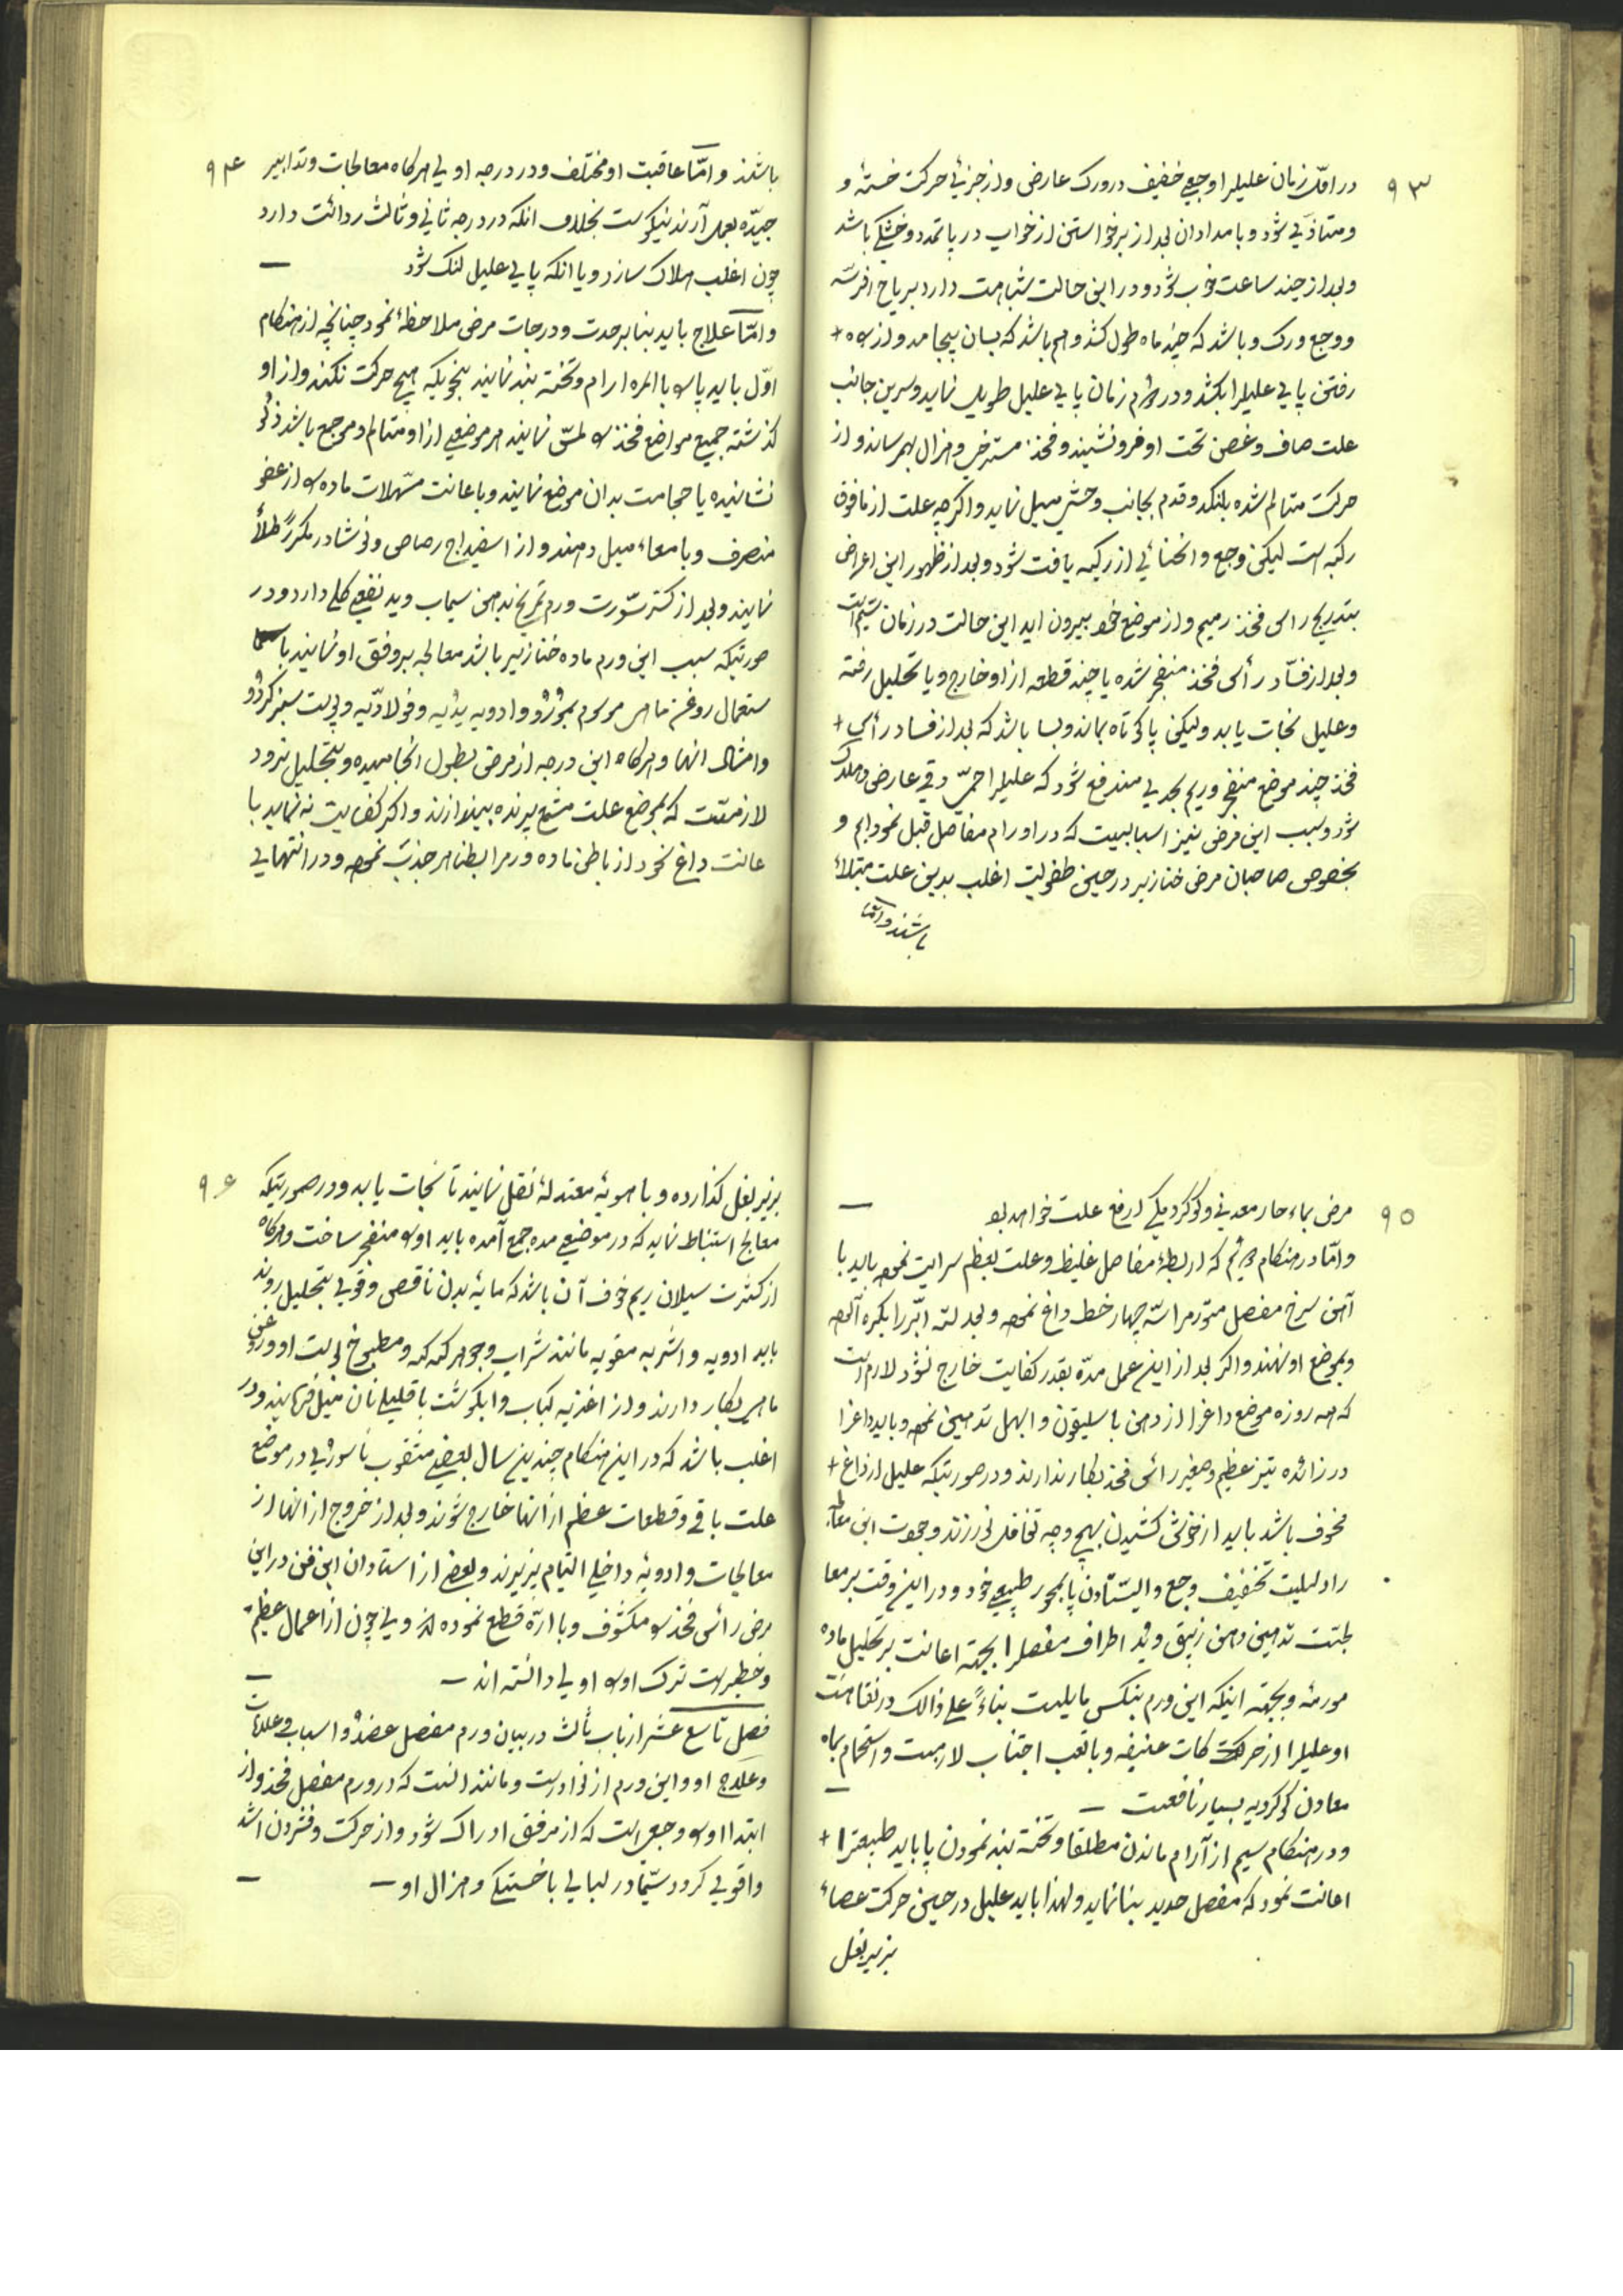 ۹۳
در اول زمان علیلرا وجعی خفیف در ورک عارض و از جزئی حرکت خسته و
و متاذی شود و بامدادان بعد از برخواستن از خواب در پا تمدد و خشکی باشد
و بعد از چند ساعت خوب شود و در این حالت شباهت دارد بریاح افرسه
و وجع ورک و باشد که چند ماه طول کشد و هم باشد که بسان پنجامد و از +
رفتن پای علیلرا بکشد و در زمان پای علیل طویل نماید و سرین جانب
علت صاف و غصن تحت او فرو نشیند و فخذ مسترخی و هزال بهم رساند و از
حرکت متالم شده بلنگد و قدم بجانب وحشی میل نماید و اگرچه علت از مافوق
رکبه است لیکن وجع و انحنائی از رکبه یافت شود و بعد از ظهور این اعراض
بتدریج راس فخذ رمیم و از موضع خود بیرون اید این حالت در زمان سیم است
و بعد از فساد رأس فخذ منفجر شده یا چند قطعه از او خارج و یا تحلیل رفته
و علیل نجات یابد ولیکن پا کوتاه بماند و بسا باشد که بعد از فساد رأس +
فخذ چند موضع منفجر و ریم بحدی مندفع شود که علیلرا حمی دقی عارض و هلاک
شود و سبب این مرض نیز اسبابیست که در اورام مفاصل قبل نمودیم و
بخصوص صاحبان مرض خنازیر در حین طفولیت اغلب بدین علت مبتلاء
باشند و اما
۹۴
باشند و اما عاقبت او مختلف و در درجه اولی هرگاه معالجات و تدابیر
جیده بعمل آرند نیکوست بخلاف انکه در درجه ثانی و ثالث ردائت دارد
چون اغلب هلاک سازد و یا انکه پای علیل لنگ شود
و اما علاج باید بنا بر حدت و درجات مرض ملاحظه نمود چنانچه از هنگام
اول باید پا را بالمره ارام و تخته بند نمایند بنحویکه هیچ حرکت نکند و از او
گذشته جمیع مواضع فخذ را لمس نمایند هر موضعی از او متالم و موجع باشد زلو
نشانیده یا حجامت بدان موضع نمایند و باعانت مسهلات ماده را از عضو
منصرف و بامعاء میل دهند و از اسفیداج رصاصی و نوشادر مکرراً طلاء
نمایند و بعد از کسر سورت ورم تمریخ بدهن سیماب و ید نفعی کلی دارد و در
صورتیکه سبب این ورم ماده خنازیر باشد معالجه بر وفق او نمایند با
ستعمال روغن ماهی موسوم بمورو و ادویه یدیه و فولادیه و پوست سبز گردو
و امثال انها و هرگاه این درجه از مرض بطول انجامیده و بتحلیل نرود
لازمست که بموضع علت مشمع پرنده بیندازند و اگر کفایت نه نماید با
عانت داغ نحو از باطن ماده ورمرا بظاهر جذب نمود و در انتهایی
۹۵
مرض بماء حار معدنی و گوگردیکی رافع علت خواهد بود
و اما در هنگام دویم که اربطه مفاصل غلیظ و علت بعظم سرایت نموده باید با
آهن سرخ مفصل متورمرا سه چهار خط داغ نموده و بعد لته ابر را بکره آلوده
و بموضع او نهند و اگر بعد از این عمل مده بقدر کفایت خارج نشود لازم است
که همه روزه موضع داغرا از دهن باسلیقون و ابهل تدهین نموده و باید داغرا
در زائده تیز عظیم و صغیر راس فخذ بکار ندارند و در صورتیکه علیل از داغ +
مخوف باشد باید از خونش کشیدن بهیچ وجه تغافل نورزند و جودت این معا
را دلیلیست تخفیف وجع و ایستادن پا بمحور طبیعی خود و در این وقت بر معا
لجتست تدهین دهن زیبق و ید اطراف مفصلرا بجهة اعانت بر تحلیل ماده
مورمه و بجهة اینکه این ورم بنکس مایلیست بناءً علی ذالک در نقاهت
او علیلرا از حرکت کات عنیفه و با تعب اجتناب لازمست و استحمام بماه
معادن گوگردیه بسیار نافعست
و در هنگام سیم از آرام ماندن مطلقا و تخته بند نمودن پا باید طبیعترا +
اعانت نمود که مفصل جدید بنا نماید و لهذا باید علیل در حین حرکت عصاء
بزیر بغل
۹۶
بزیر بغل گذارده و باهویه معتدله نقل نمایند تا نجات یابد و در صورتیکه
معالج استنباط نماید که در موضعی مده جمع آمده باید او را منفجر ساخت و هرگاه
از کثرت سیلان ریم خوف آن باشد که مایه بدن ناقص و قوی بتحلیل روند
باید ادویه و اشربه مقویه مانند شراب و جوهر گنه گنه و مطبوخ پوست او و روغن
ماهی بکار دارند و از اغذیه کباب و ابگوشت با قلیلی نان میل فرمایند و در
اغلب باشد که در این هنگام چندین سال بعضی مثقوب ناسوری در موضع
علت باقی و قطعات عظم از انها خارج شوند و بعد از خروج از انها از
معالجات و ادویه داخلی التیام پذیرند و بعضی از استادان این فن در این
مرض رأس فخذ را مکشوف و با اره قطع نموده اند ولی چون از اعمال عظیم
و خطیر است ترک او را اولی دانسته اند
فصل تاسع عشر از باب ثالث در بیان ورم مفصل عضد و اسباب و علامات
و علاج او و این ورم از نوادرست و مانند انست که در ورم مفصل فخذ و از
ابتدا او را وجعی است که از مرفق ادراک شود و از حرکت و فشردن اشد
و اقوی گردد سیما در لیالی با خستگی و هزال او